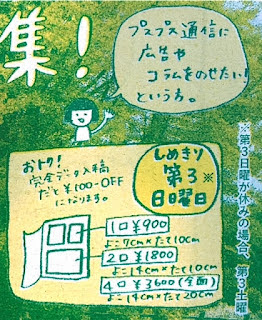 集！
プスプス通信に
広告や
コラムをのせたい！
という方。
おトク！
完全データ入稿
だと¥100-OFF
になります。
しめきり
第3※
日曜日
1口 ¥900
よこ7cm×たて10cm
2口 ¥1800
よこ14cm×たて10cm
4口 ¥3600（全面）
よこ14cm×たて20cm
※第3日曜が休みの場合、第3土曜